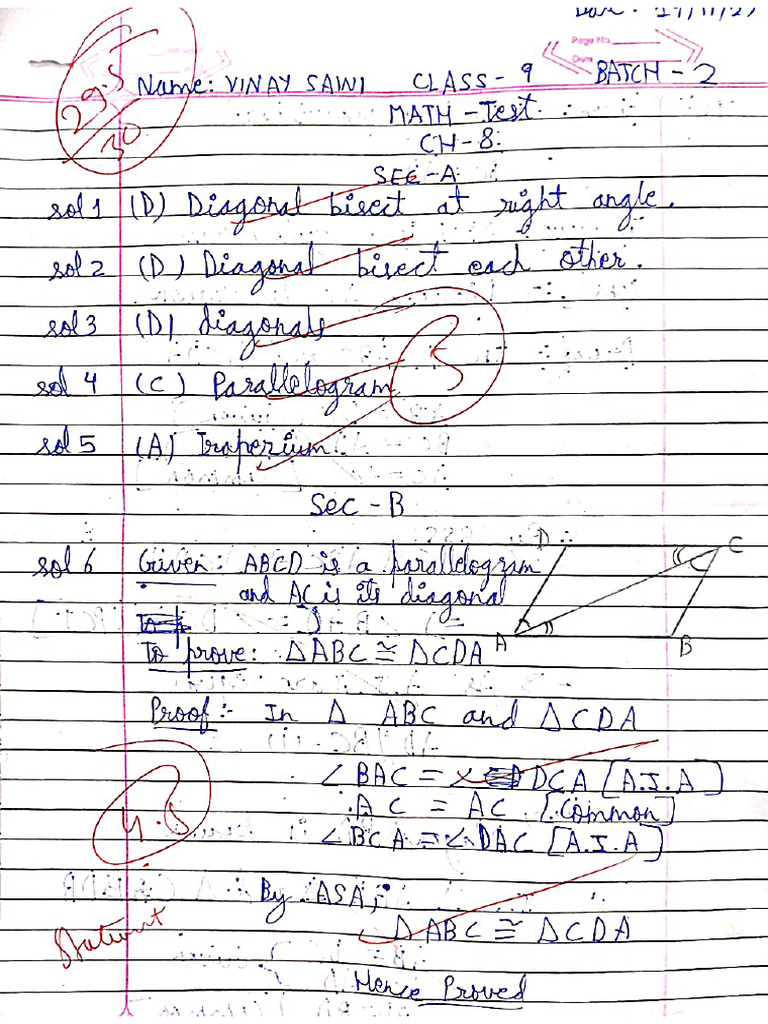 Date: 27/11/25
Page No.
Date
29.5/30
Name: VINAY SAINI CLASS - 9 BATCH - 2
MATH - Test
CH - 8
SEC - A
sol 1 (D) Diagonal bisect at right angle.
sol 2 (D) Diagonal bisect each other.
sol 3 (D) diagonals
5
sol 4 (C) Parallelogram
sol 5 (A) Traperium
Sec - B
sol 6 Given: ABCD is a parallelogram
and AC is its diagonal
D C
A B
To prove: △ABC ≅ △CDA
Proof:- In △ ABC and △CDA
∠BAC = ∠DCA [A.I.A]
AC = AC [Common]
∠BCA = ∠DAC [A.I.A]
4.5
∴ By ASA,
△ABC ≅ △CDA
Statement
Hence Proved